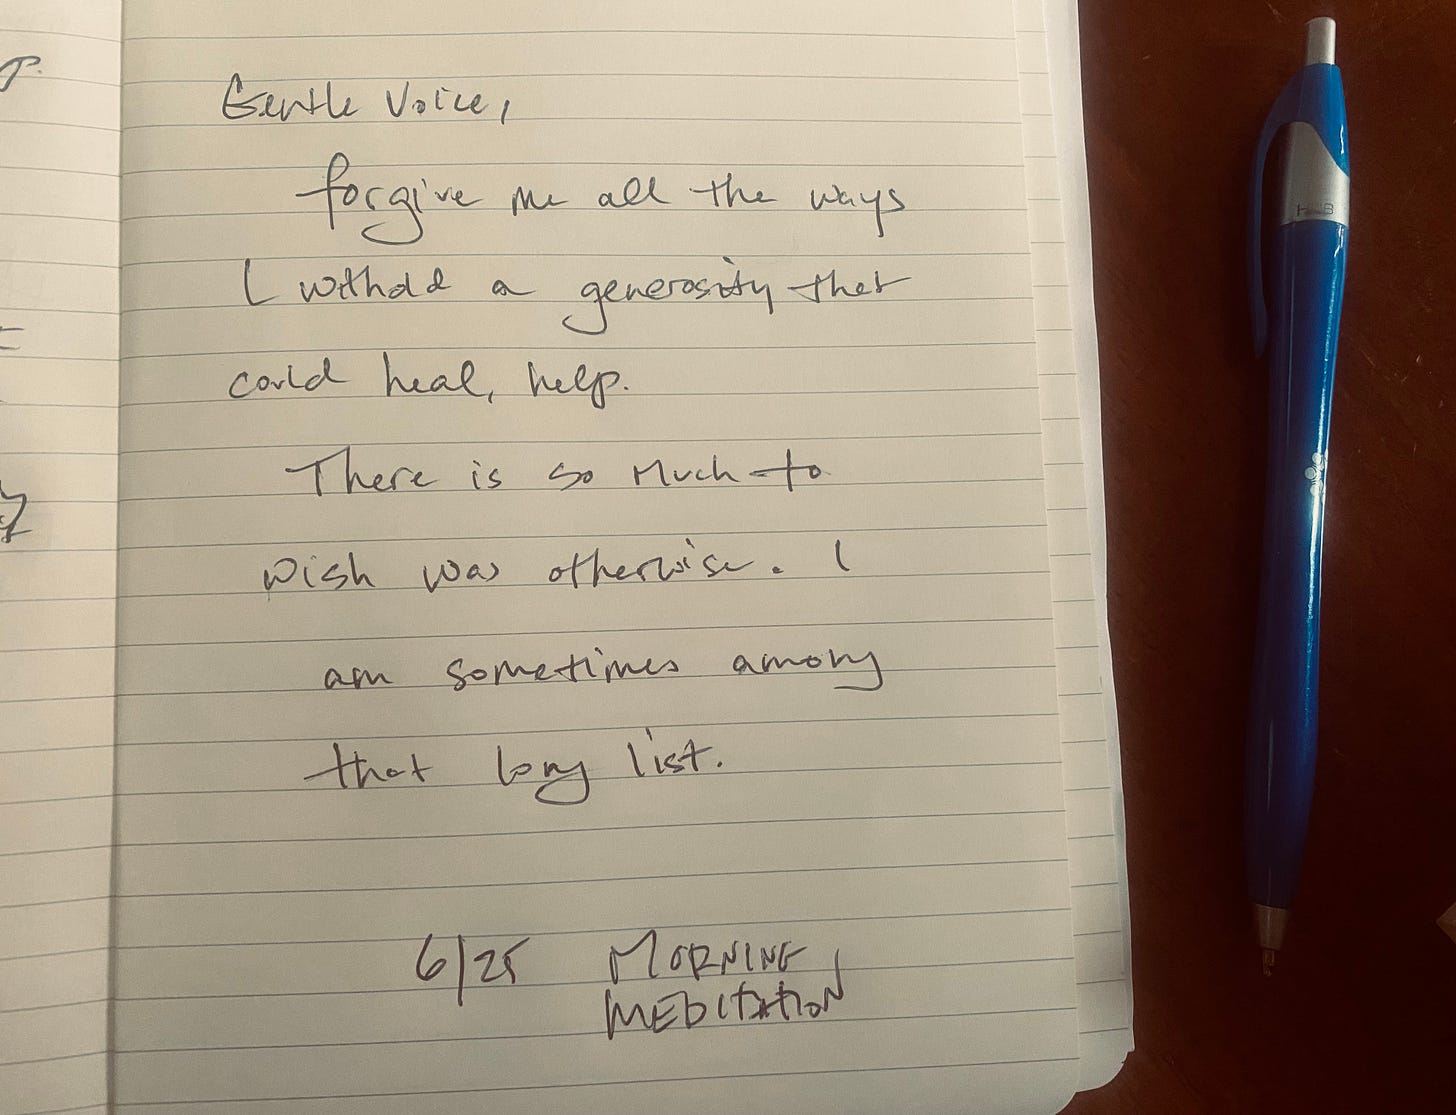 Gentle Voice,
forgive me all the ways
I withold a generosity that
could heal, help.
There is so much to
wish was otherwise. I
am sometimes among
that long list.
6/25 MORNING
MEDITATION